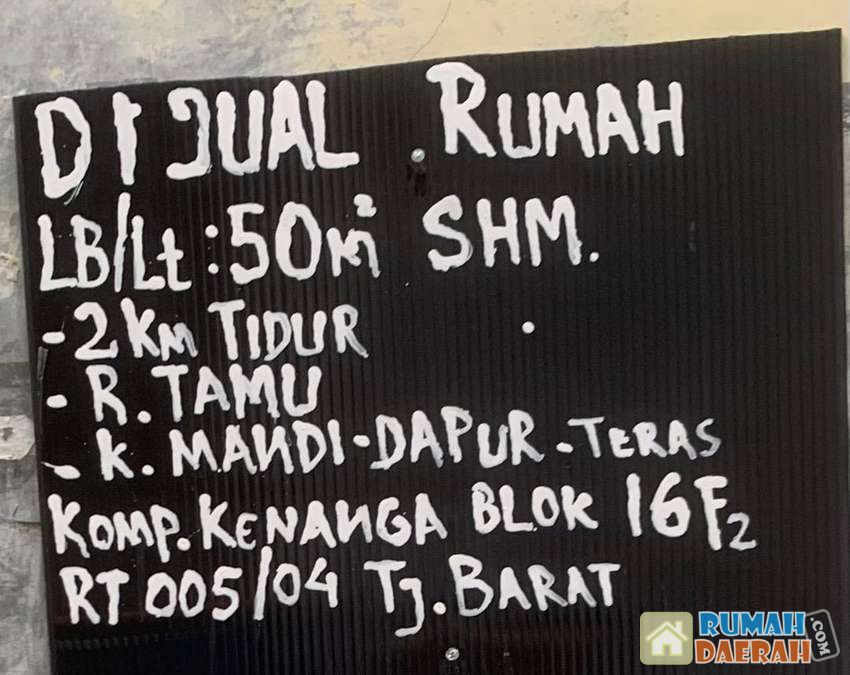 DIJUAL RUMAH
LB/Lt : 50m² SHM.
- 2 Km TIDUR
- R. TAMU
- K. MANDI - DAPUR - TERAS
KOMP. KENANGA BLOK 16 F2
RT 005/04 Tj. BARAT
RUMAH
DAERAH .COM